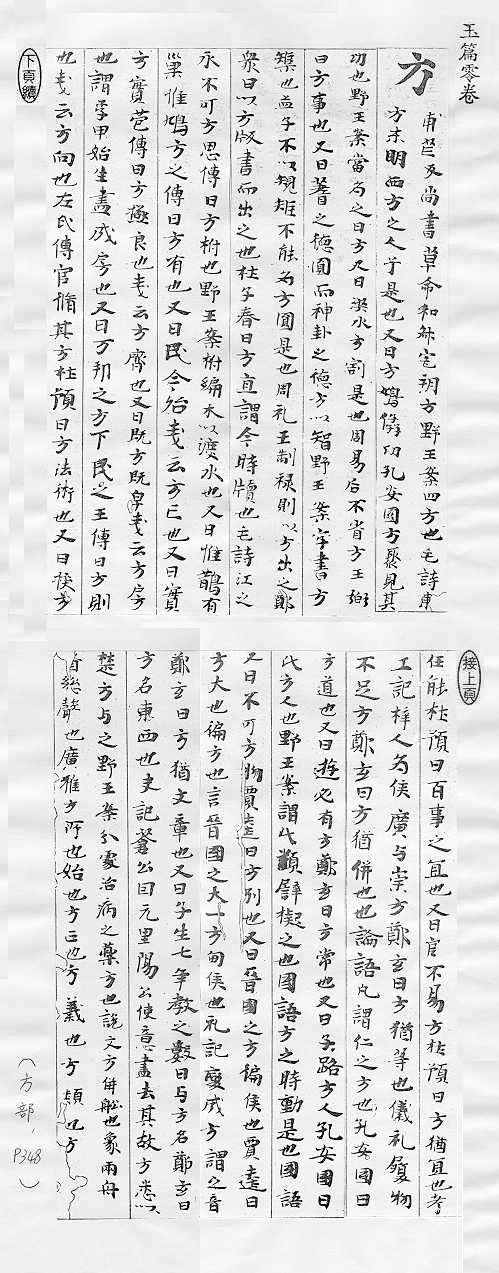 玉篇零卷
方 甫芒反尚書革命和叔宅朔方野王案四方也毛詩東
方未明西方之人兮是也又曰方鳩僝功孔安國方聚見其
功也野王案當為之曰方又曰洪水方割是也周易后不省方王弼
曰方事也又曰蓍之德圓而神卦之德方以智野王案字書方
榘也孟子不以規矩不能為方圓是也周礼王制禄則以方出之鄭
衆曰以方版書而出之也杜子春曰方直謂今時牘也毛詩江之
永不可方思傳曰方泭也野王案泭編木以渡水也又曰惟鵲有
巢惟鳩方之傳曰方有也又曰民今殆箋云方已也又曰實
方實苞傳曰方極良也箋云方齊也又曰既方既皁箋云方房
也謂孚甲始生盡成房也又曰万邦之方下民之王傳曰方則
也箋云方向也左氏傳官脩其方杜預曰方法術也又曰授方
下頁續
接上頁
任能杜預曰百事之宜也又曰官不易方杜預曰方猶宜也考
工記梓人為侯廣与崇方鄭玄曰方猶等也儀礼履物
不足方鄭玄曰方猶併也也論語凡謂仁之方也孔安國曰
方道也又曰遊必有方鄭玄曰方常也又曰子路方人孔安國曰
比方人也野王案謂比類譬擬之也國語方之時動是也國語
又曰不可方物賈逵曰方別也又曰晉國之方偏侯也賈逵曰
方大也偏方也言晉國之大一方甸侯也礼記變成方謂之音
鄭玄曰方猶文章也又曰子生七年教之數日与方名鄭玄曰
方名東西也史記蒼公曰元里陽公使意盡去其故方悉以
禁方与之野王案分處治病之藥方也說文方併舩也象兩舟
省総聲也廣雅方所也始也方正也方義也方類也方
（方部，P348）